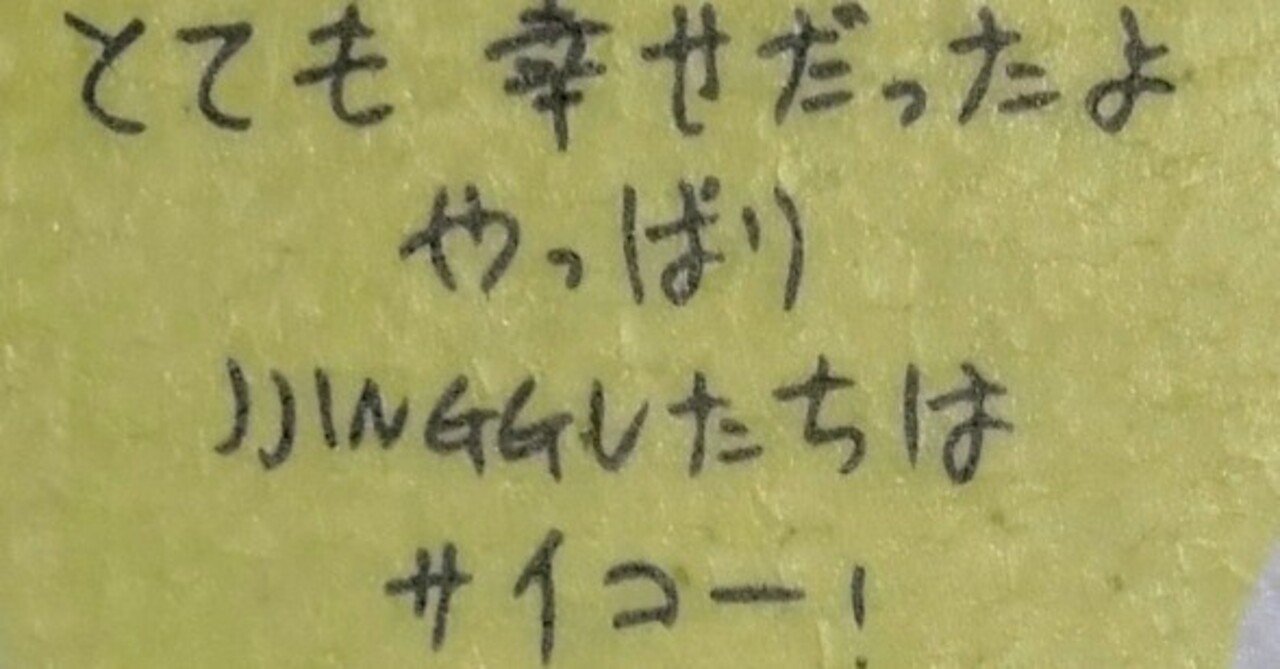 とても 幸せだったよ
やっぱり
JJINGGUたちは
サイコー!